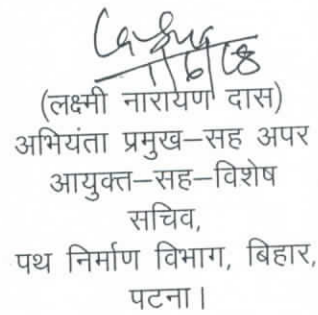 1/6/18
(लक्ष्मी नारायण दास)
अभियंता प्रमुख–सह अपर
आयुक्त–सह–विशेष
सचिव,
पथ निर्माण विभाग, बिहार,
पटना।